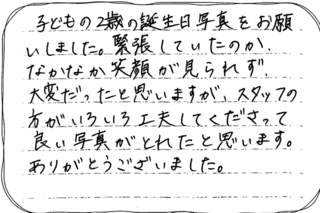 子どもの2歳の誕生日写真をお願
いしました。緊張していたのか、
なかなか笑顔が見られず、
大変だったと思いますが、スタッフの
方がいろいろ工夫してくださって
良い写真がとれたと思います。
ありがとうございました。